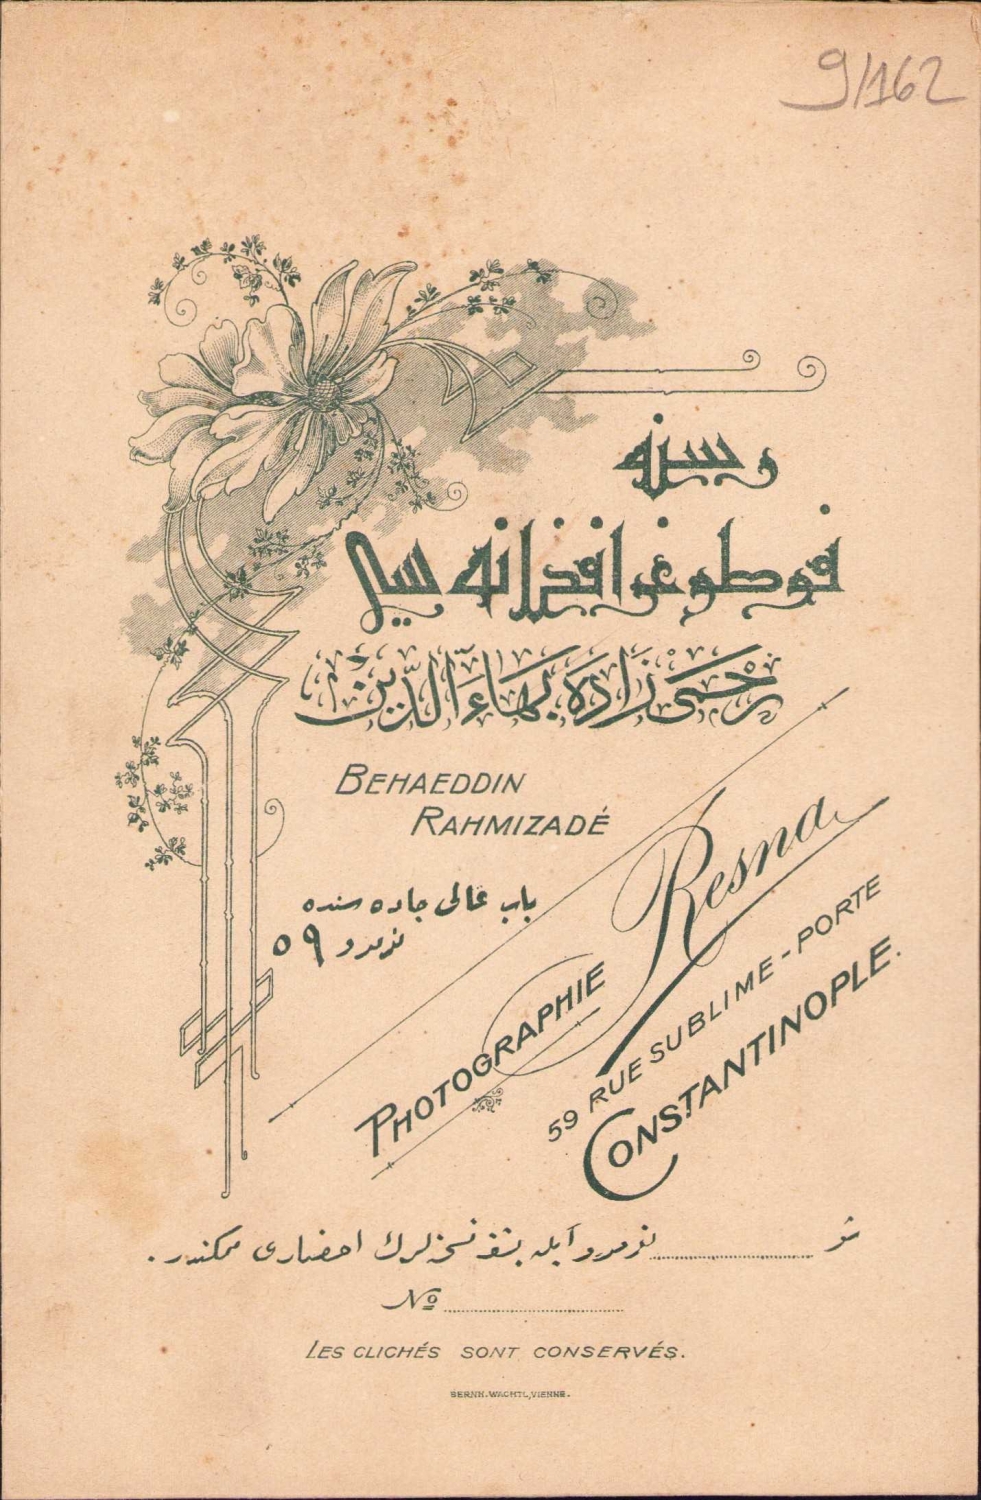 9/162
رسنه
فوطوغرافخانه سی
رحمی زاده بهاءالدین
BEHAEDDIN
RAHMIZADÉ
باب عالی جاده سنده
نومرو ٥٩
PHOTOGRAPHIE Resna
59 RUE SUBLIME-PORTE
CONSTANTINOPLE.
شو ............ نومرو ایله بشقه نسخه لرك احضاری ممکندر.
No ............
LES CLICHÉS SONT CONSERVÉS.
BERNH. WACHTL, VIENNE.